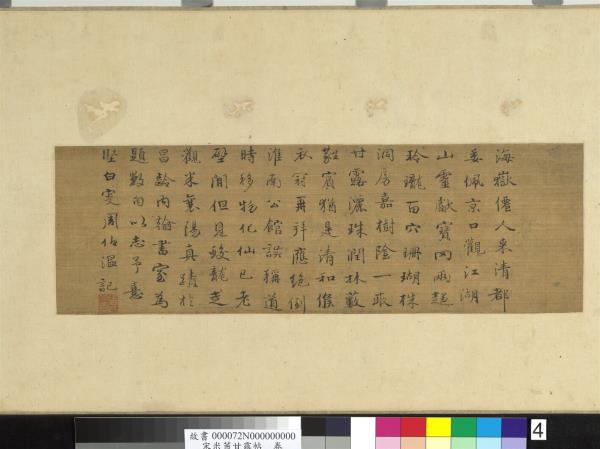 海嶽僊人來清都
委佩京口觀江湖
山靈獻寶罔兩趨
玲瓏百穴珊瑚株
洞房嘉樹陰一畝
甘露灑珠潤林藪
蕤賓猶是清和候
秋翁再拜應絕倒
淮南公館誤稱道
時移物化仙已老
壁間但見蛟龍走
觀米襄陽真蹟於
昌齡內翰書室為
題數句以志予喜
堅白叟周伯溫記
故書 000072N000000000
宋米芾甘露帖 卷
4